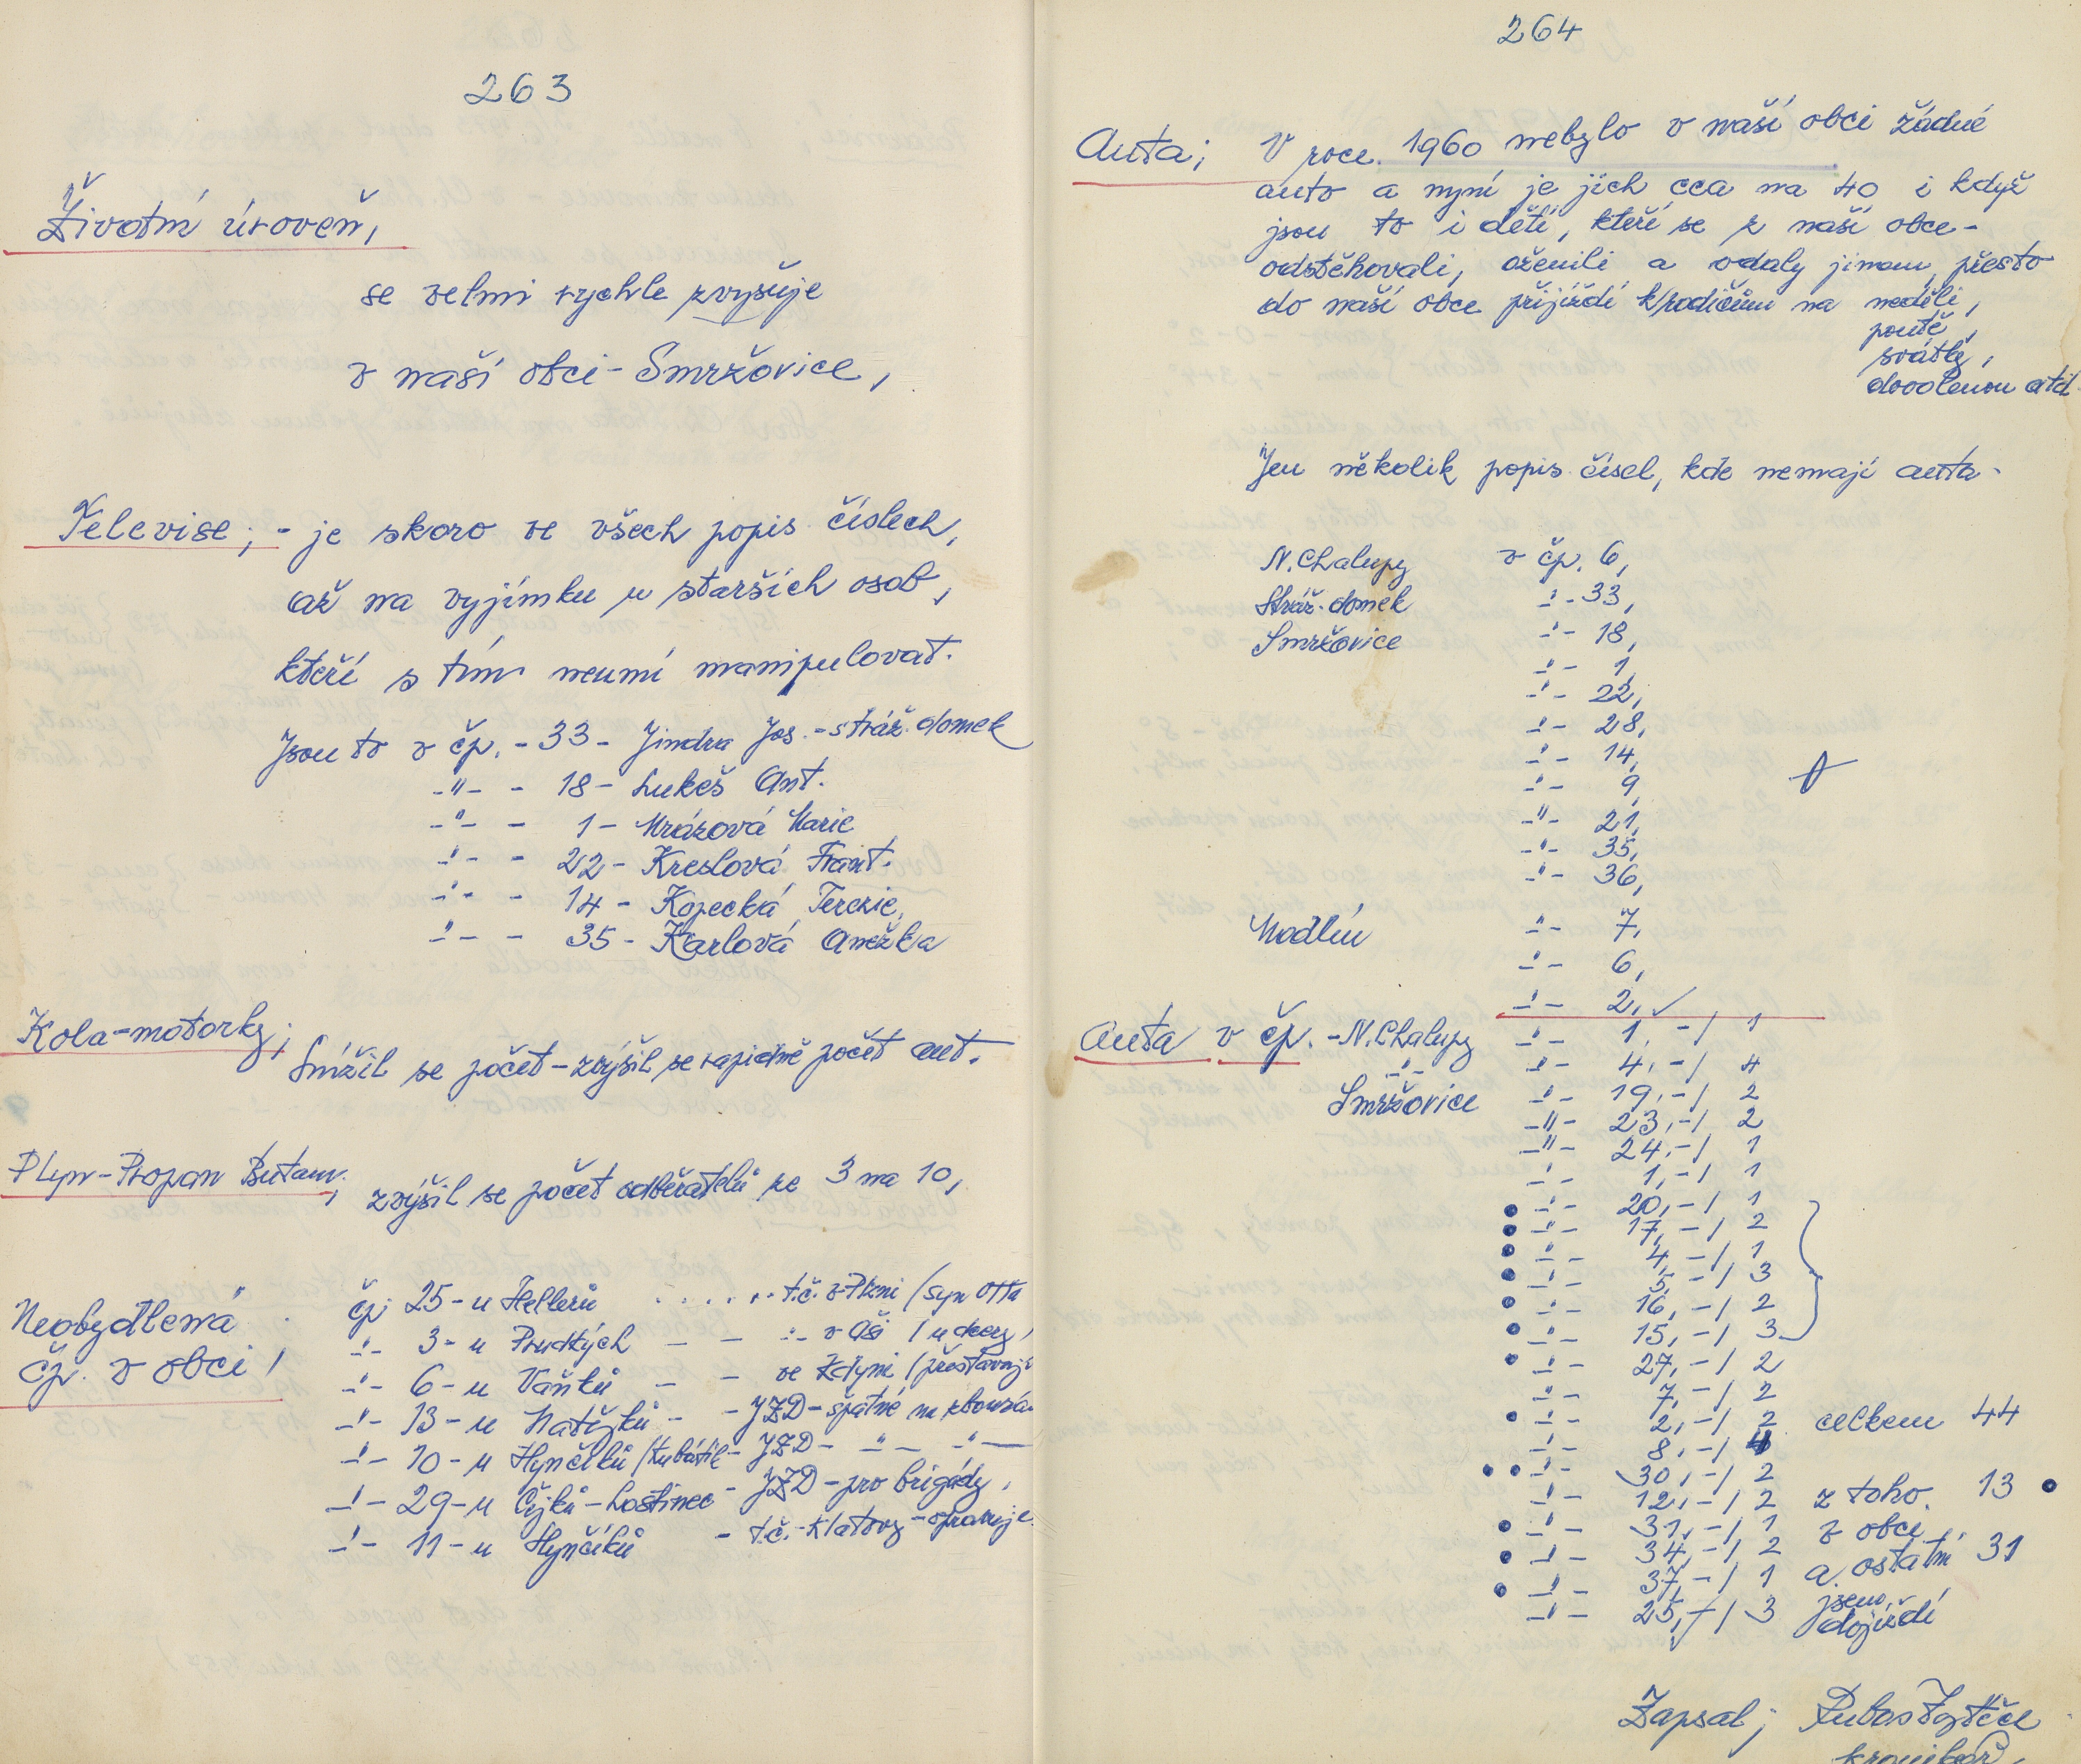 263
Životní úroveň,
se velmi rychle zvyšuje
v naší obci - Smržovice,
Televise; - je skoro ve všech popis. číslech,
až na vyjímku u starších osob,
kteří s tím neumí manipulovat.
Jsou to v čp. - 33 - Jindra Jos. - stráž. domek
-"- - 18 - Lukeš Ant.
-"- - 1 - Mrázová Marie
-"- - 22 - Kreslová Frant.
-"- - 14 - Kopecká Terezie,
-"- - 35 - Karlová Anežka
Kola - motorky;
Snížil se počet - zvýšil se rapidně počet aut.
Plyn - Propan Butan;
zvýšil se počet odběratelů ze 3 na 10,
Neobydlená
čp. v obci,
čp. 25 - u Hellerů . . . . . . t.č. v Plzni / syn Otta
-"- 3 - u Prudkých - - -"- v Aši / u dcery,
-"- 6 - u Vaňků - - ve Kdyni / přestavuj
-"- 13 - u Matějků - - JZD - špatné na zbourá
-"- 10 - u Hynčíků / Kubátik - JZD - -"- -"-
-"- 29 - u Čejků - hostinec - JZD - pro brigády,
-"- 11 - u Hynčíků - t.č. - Klatovy - opravuje.
264
Auta; V roce 1960 nebylo v naší obci žádné
auto a nyní je jich cca na 40 i když
jsou to i děti, kteří se z naší obce -
odstěhovali, oženili a vdaly jinam, přesto
do naší obce přijíždí k/rodičům na neděli,
poutě,
svátky,
dovolenou atd.
Jen několik popis. čísel, kde nemají auta -
N. Chalupy v čp. 6,
Stráž. domek -"- 33,
Smržovice -"- 18,
-"- 1,
-"- 22,
-"- 28,
-"- 14,
-"- 9,
-"- 21,
-"- 35,
-"- 36,
Modlín -"- 7,
-"- 6,
-"- 2, ✓
Auta v čp. - N. Chalupy -"- 1, -/ 1
-"- -"- 4, -/ 4
Smržovice -"- 19, -/ 2
-"- 23, -/ 2
-"- 24, -/ 1
-"- 1, -/ 1
• -"- 20, -/ 1
• -"- 17, -/ 2
• -"- 4, -/ 1
• -"- 5, -/ 3
• -"- 16, -/ 2
• -"- 15, -/ 3
• -"- 27, -/ 2
-"- 7, -/ 2
• -"- 2, -/ 2 celkem 44
-"- 8, -/ 4
• • -"- 30, -/ 2
-"- 12, -/ 2 z toho 13 •
• -"- 31, -/ 1 z obce
• -"- 34, -/ 2 a ostatní 31
• -"- 37, -/ 1 jsem
-"- 25, -/ 3 dojíždí
Zapsal;
kronikář